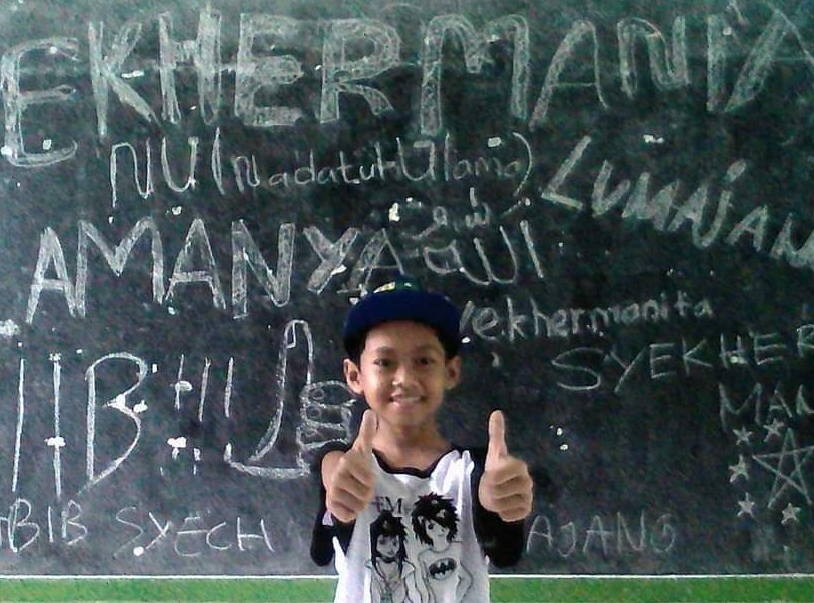 EKHERMANIA
NU (Nadatuh Ulama)
LUMAJAN
AMANYA
الله
yekhermanita
SYEKHER
MAN
HB
ABIB SYECH AJANG
FM